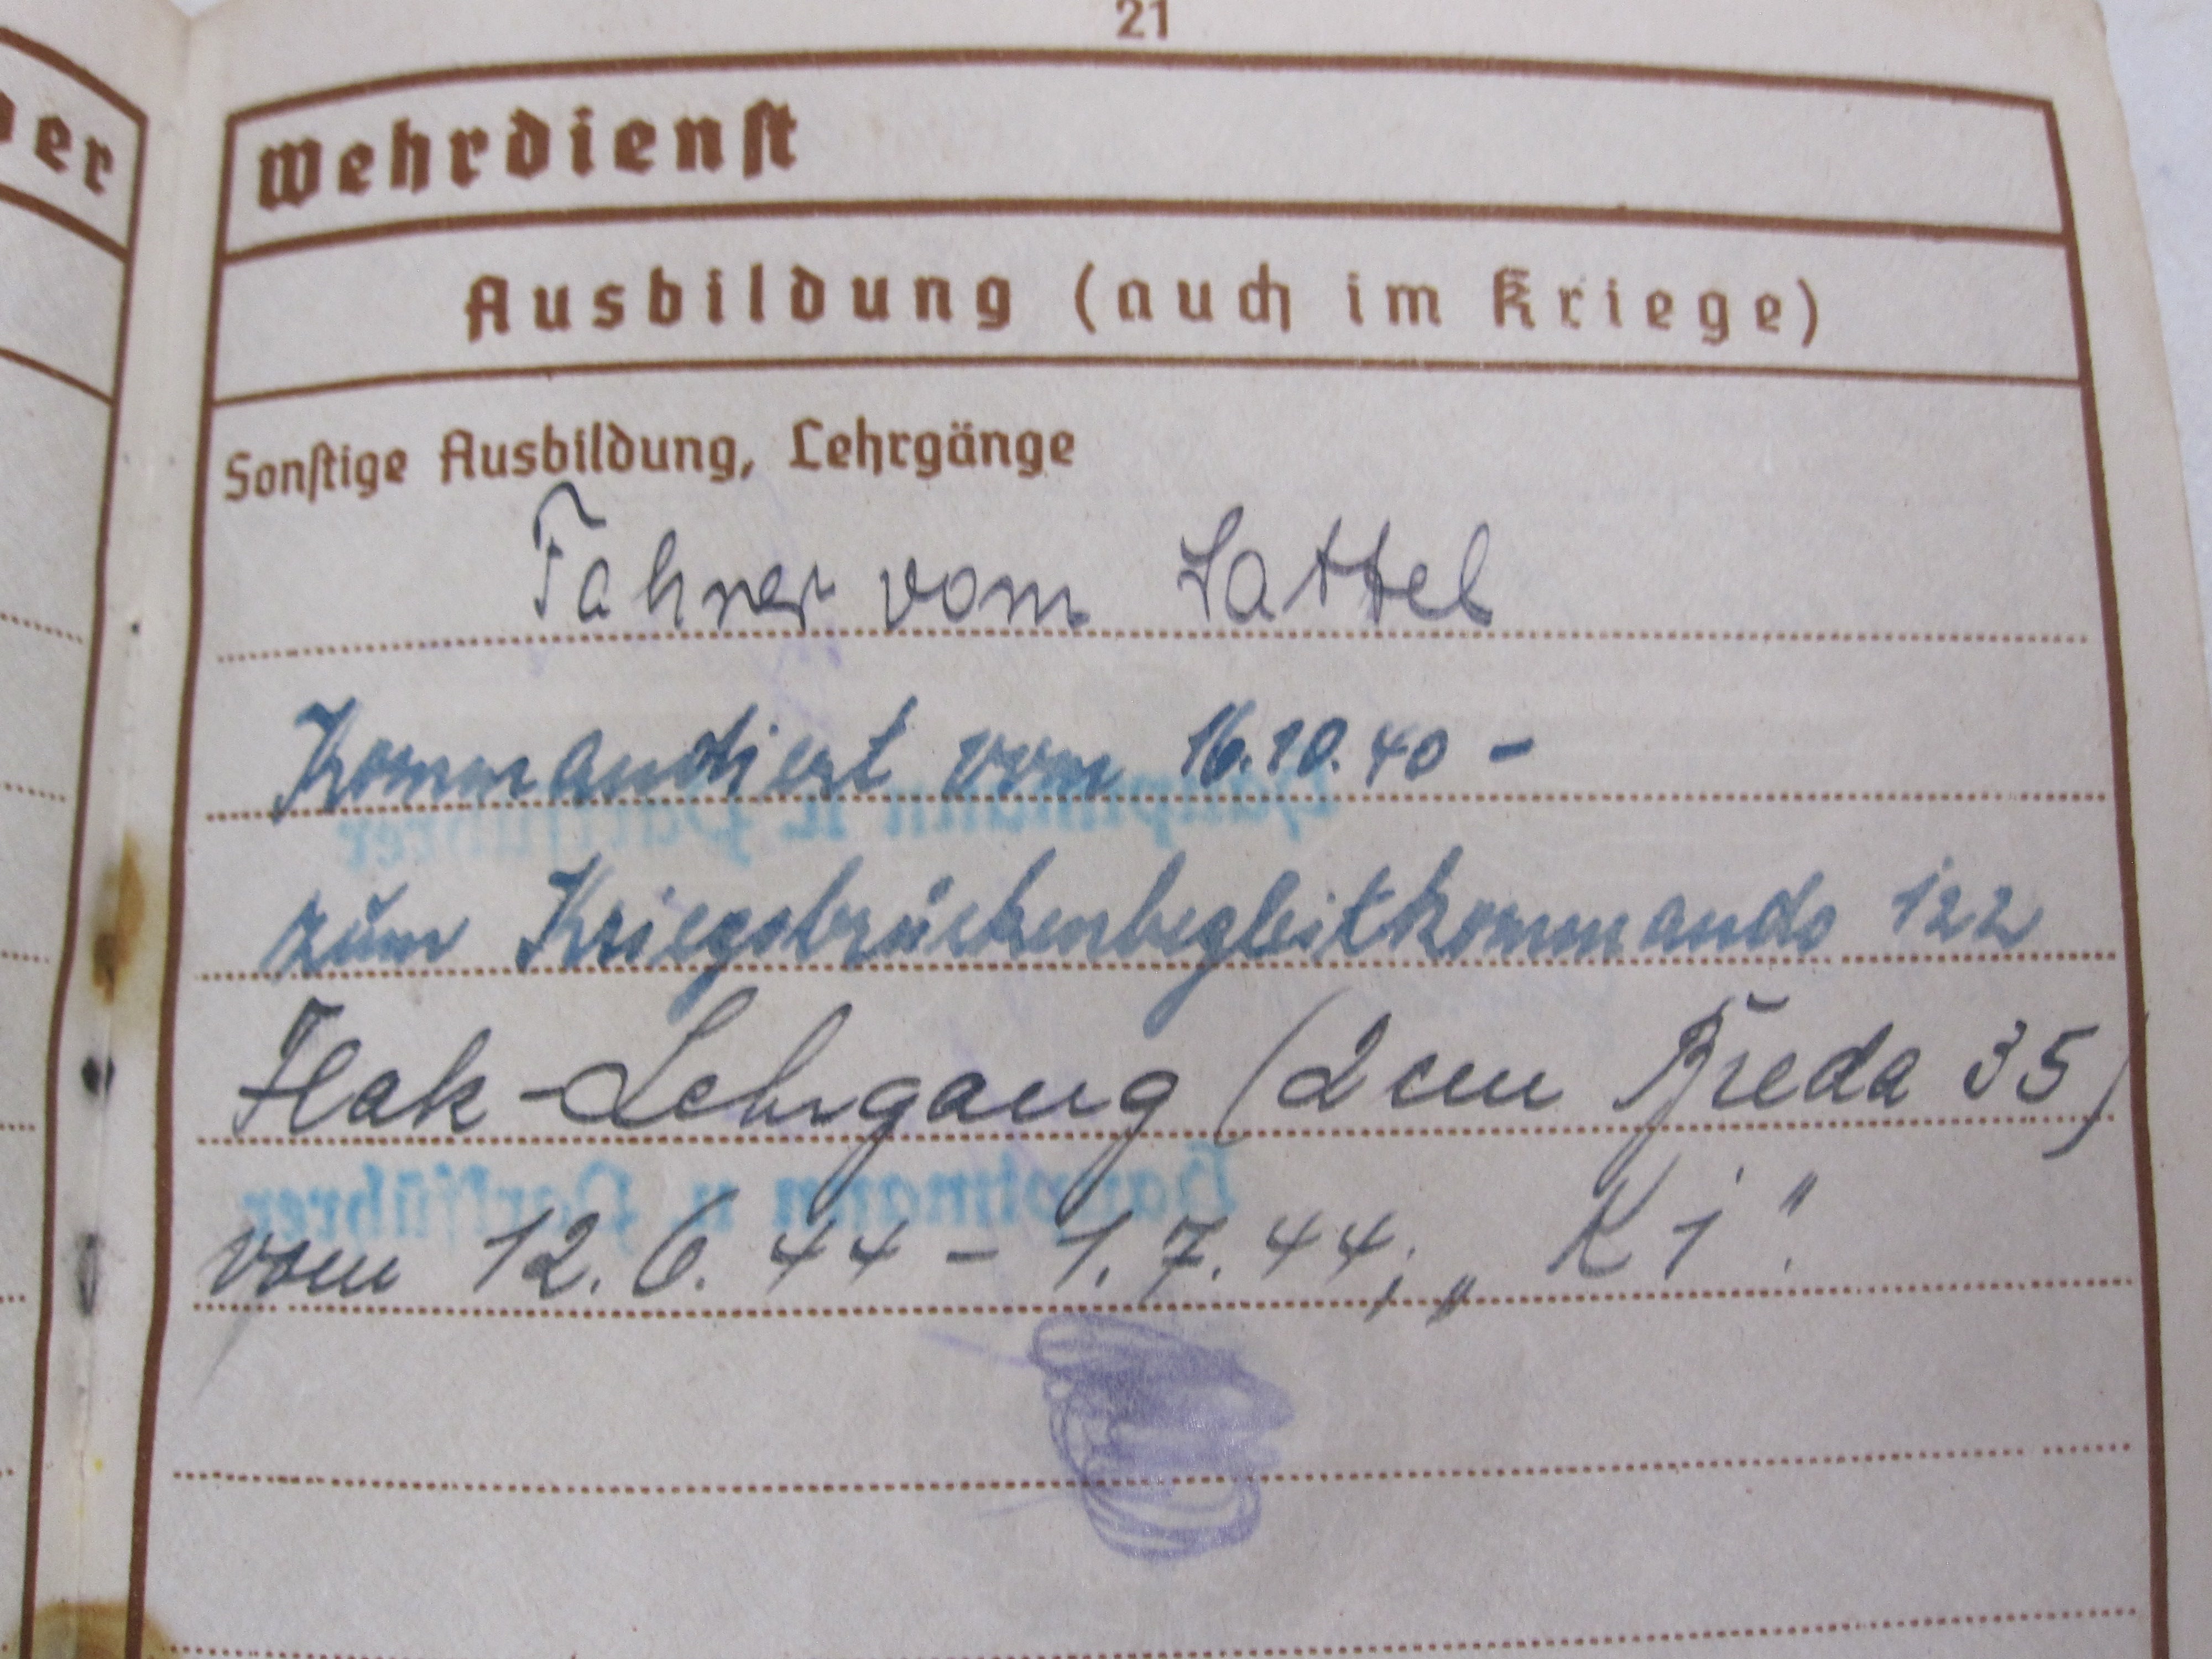 21
Wehrdienst
Ausbildung (auch im Kriege)
Sonstige Ausbildung, Lehrgänge
Fahrer vom Sattel
Kommandiert vom 16.10.40 –
zum Kriegsbrückenbegleitkommando 122
Flak-Lehrgang (2 cm Breda 35)
vom 12.6.44 – 1.7.44, „K j".